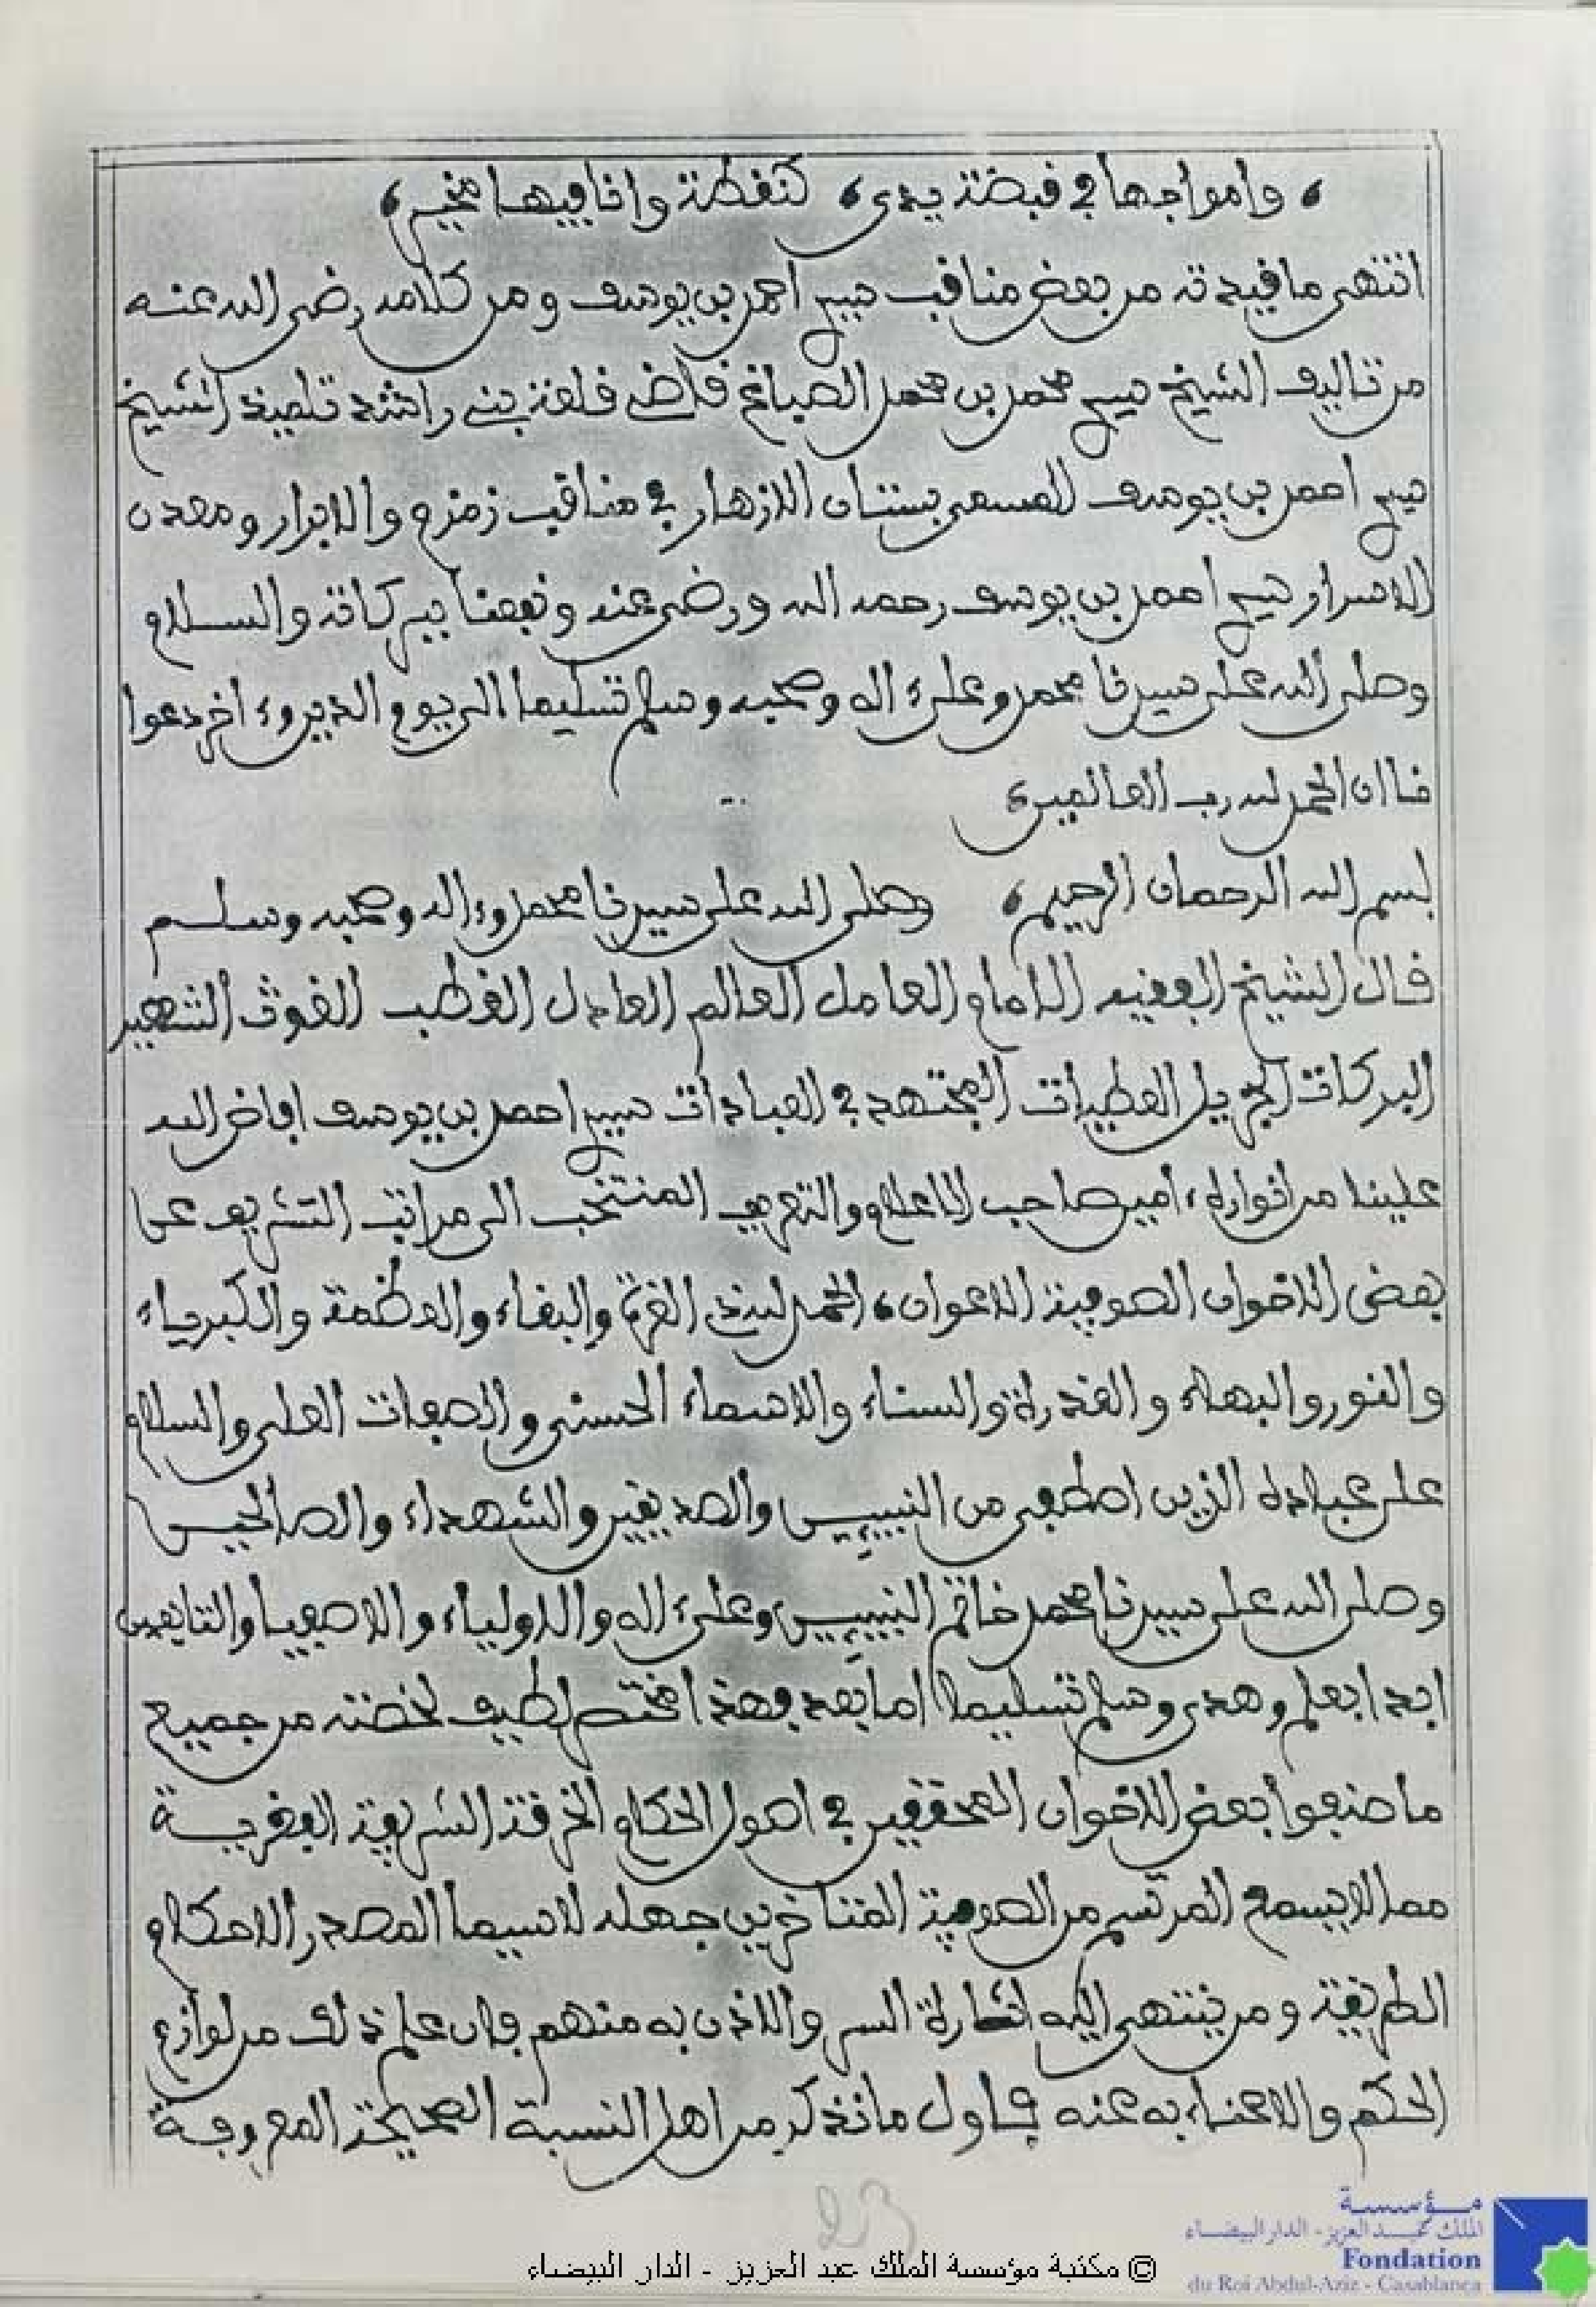 وامواجها في قبضة يدي، كنقطة وانا فيها مخير،
انتهى ما قيدته من بعض مناقب سيدي احمد بن يوسف ومن كلامه رضي الله عنه
من تاليف الشيخ سيدي محمد بن محمد الصباغ قاضي قلعة بني راشد تلميذ الشيخ
سيدي احمد بن يوسف المسمى بستان الازهار في مناقب زمزم والابرار ومعدن
الاسرار سيدي احمد بن يوسف رحمه الله ورضي عنه ونفعنا ببركاته والسلام
وصلى الله على سيدنا محمد وعلى ءاله وصحبه وسلم تسليما الى يوم الدين وءاخر دعوانا
ان الحمد لله رب العالمين
بسم الله الرحمان الرحيم، وصلى الله على سيدنا محمد وءاله وصحبه وسلم
قال الشيخ الفقيه الامام العامل العالم العادل القطب الغوث الشهير
البركات الجزيل العطيات المجتهد في العبادات سيدي احمد بن يوسف افاض الله
علينا من انواره ءامين صاحب الاعلام والتعريف المنتخب الى مراتب التشريف عن
بعض الاخوان الصوفية الاعوان، الحمد لله ذي العزة والبقاء والعظمة والكبرياء
والنور والبهاء والقدرة والسناء والاسماء الحسنى والصفات العلى والسلام
على عباده الذين اصطفى من النبيين والصديقين والشهداء والصالحين
وصلى الله على سيدنا محمد خاتم النبيين وعلى ءاله والاولياء والاصفيا والتابعين
ابدا بعلم وهدى وسلم تسليما اما بعد فهذا مختصر لطيف لخصته من جميع
ما صنعوا بعض الاخوان المحققين في اصول احكام الخرقة الشريفة الفخرية
مما لا يسمع المرتسم من الصوفية المتاخرين جهله لاسيما المصدر الاحكام
الطريقة ومن ينتهى اليه اشارة السر والاذن به منهم فان علم ذلك من لوازم
الحكم والاعتناء به عنه فاول ما نذكر من اهل النسبة الصحيحة المعروفة
23
مؤسسة
الملك عبد العزيز - الدار البيضاء
Fondation
du Roi Abdul-Aziz - Casablanca
© مكتبة مؤسسة الملك عبد العزيز - الدار البيضاء